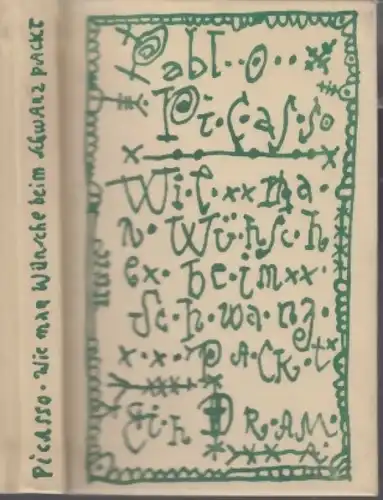 Picasso · Wie man Wünsche beim SchwAnZ pAckt
Pabl··o··
Pi·c·as·so
Wi·e·xx ma·
n·Wü·nsc·h
ex·be·imxx·
Sc·h·wa·nz·
x·x·x·PA·CK·tx
Ei·n DR·AM·
A·